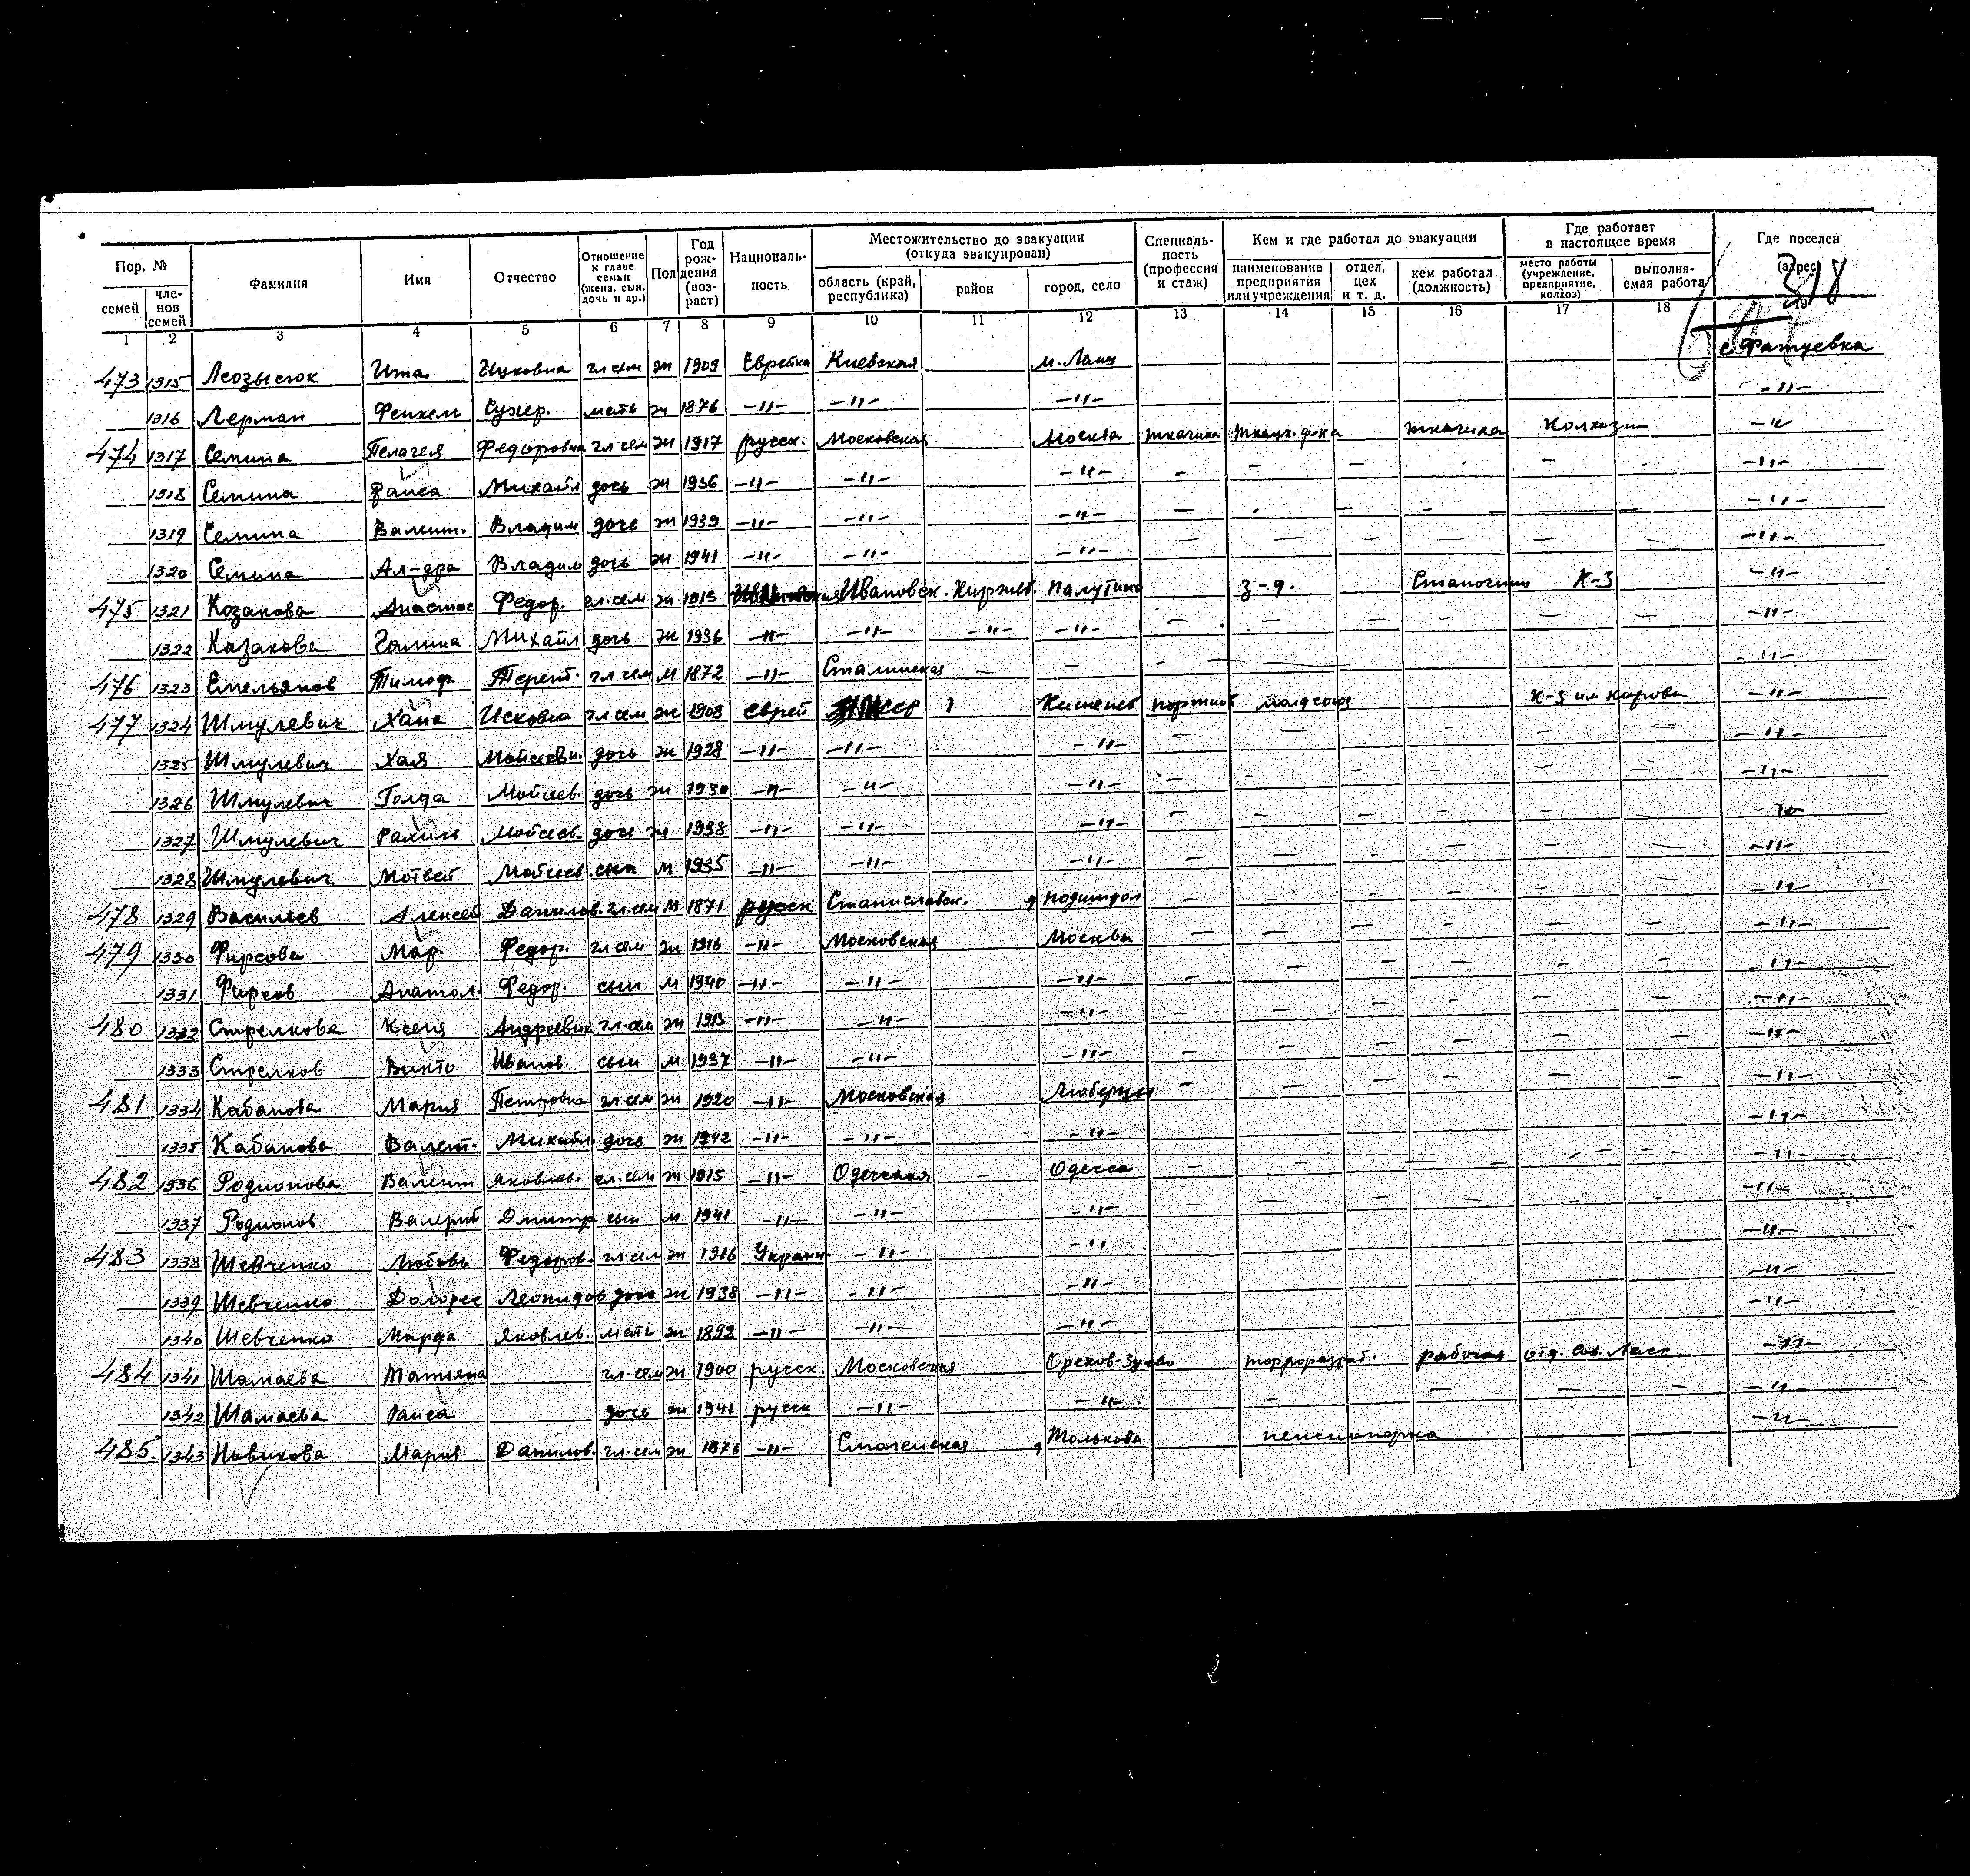 Пор. № Фамилия Имя Отчество Отношение к главе семьи (жена, сын, дочь и др.) Пол Год рождения (возраст) Националь-ность Местожительство до эвакуации (откуда эвакуирован) Специаль-ность (профессия и стаж) Кем и где работал до эвакуации Где работает в настоящее время Где поселен (адрес)
семей чле-нов семей область (край, республика) район город, село наименование предприятия или учреждения отдел, цех и т. д. кем работал (должность) место работы (учреждение, предприятие, колхоз) выполня-емая работа
318
1 2 3 4 5 6 7 8 9 10 11 12 13 14 15 16 17 18 19
473 1315 Ита Ицковна гл сем ж 1909 Еврейка Киевская с. Фатуевка
1316 Лерман Сухер. мать ж 1876 -"- -"- -"- -"-
474 1317 Семина Пелагея Федоровна гл сем ж 1917 русск. Московская Москва ткачиха ткацк. ф-ка ткачиха -"-
1318 Семина Раиса Михайл дочь ж 1936 -"- -"- -"- - - - - -"-
1319 Семина Валент. Владим дочь ж 1939 -"- -"- -"- - - - - - -"-
1320 Семина Ал-дра Владим дочь ж 1941 -"- -"- -"- - - - - - - -"-
475 1321 Козакова Анастас Федор. гл.сем ж 1915 Ивановск. Киржат. з-д. К-З -"-
1322 Казакова Галина Михайл дочь ж 1936 -"- -"- -"- -"- - - - - - - -"-
476 1323 Емельянов Тимоф. Терент. гл сем м 1872 -"- Сталинская - - - - - - - - -"-
477 1324 Шмулевич Хана Исковна гл сем ж 1908 еврей Кишенев портниха К-З им Кирова -"-
1325 Шмулевич Хая Мойсеевн. дочь ж 1928 -"- -"- -"- - - - - - - -"-
1326 Шмулевич Голда Мойсеев. дочь ж 1930 -"- -"- -"- - - - - - - -"-
1327 Шмулевич Рахиль Мойсеев. дочь ж 1938 -"- -"- -"- - - - - - - -"-
1328 Шмулевич Мотвей Мойсеев сын м 1935 -"- -"- -"- - - - - - - -"-
478 1329 Васильев Алексей Данилов. гл.сем м 1871 русск Станиславск. - - - - - - -"-
479 1330 Фирсова Мар. Федор. гл сем ж 1916 -"- Московская Москва - - - - - - -"-
1331 Фирсов Анатол. Федор. сын м 1940 -"- -"- -"- - - - - - - -"-
480 1332 Стрелкова Ксеня Андреевна гл.сем ж 1913 -"- -"- -"- - - - - - - -"-
1333 Стрелков Викто Иванов. сын м 1937 -"- -"- -"- - - - - - - -"-
481 1334 Кабанова Мария Петровна гл.сем ж 1920 -"- Московская Люберцы - - - - - - -"-
1335 Кабанова Валент. Михайл дочь ж 1942 -"- -"- -"- -"-
482 1336 Родионова Валент Яковлев. гл.сем ж 1915 -"- Одесская - Одесса - - - - - - -"-
1337 Родионов Валерий Дмитр сын м 1941 -"- -"- -"- - - - - - -"-
483 1338 Шевченко Любовь Федоров. гл.сем ж 1916 Украин -"- -"- -"-
1339 Шевченко Долорес Леонидов дочь ж 1938 -"- -"- -"- -"-
1340 Шевченко Марфа Яковлев. мать ж 1892 -"- -"- -"- -"-
484 1341 Шамаева Татьяна гл.сем ж 1900 русск. Московская Орехов-Зуево торфоразраб. рабочая -"-
1342 Шамаева Раиса дочь ж 1941 русск -"- -"- - - - - -"-
485 1343 Новикова Мария Данилов. гл.сем ж 1876 -"- Смоленская пенсионерка -"-